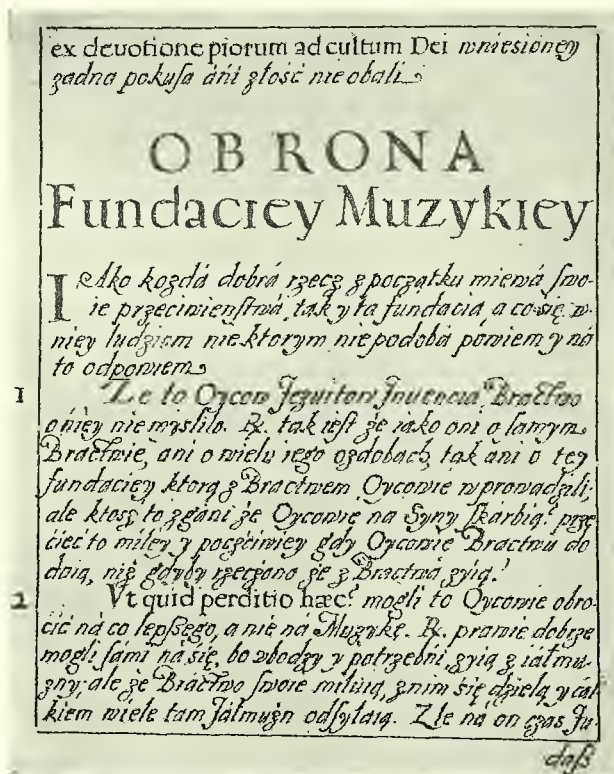 ex devotione piorum ad cultum Dei wniesioney
żadna pokuſa áńi złość nie obali.
OBRONA
Fundaciey Muzykiey
IAko kożdá dobrá rzecz z początku miewá ſwo-
ie przeciwieńſtwá, tak y ta fundacia, a co się w
niey ludziom niektorym nie podobá powiem y ná
to odpowiem.
1 Że to Oycow Jezuitow Jnuencia, Bráctwo
o ńiey nie myśliło. R. tak ieſt że iako oni o ſamym
Bráctwie, ani o wielu iego ozdobach, tak áni o tey
fundaciey ktorą z Bractwem Oycowie wprowadzili;
ale ktosz to zgáni że Oycowie na Syny ſkárbią? prze
ćieć to miley y poczćiwiey gdy Oycowie Bractwu do
dáią, niż gdyby rzeczono że z Bráctwá żyią!
2 Vt quid perditio hæc? mogli to Oycowie obro-
ćić ná co lepſzego, a nie ná Muzykę. R. prawie dobrze
mogli ſami ná się, bo vbodzy y potrzebni, żyią z iáłmu-
żny; ale że Bráctwo ſwoie miłuią, z nim się dzielą y cáł-
kiem wiele tam Jáłmużn odſyłáią. Zle ná on czas Ju-
daß